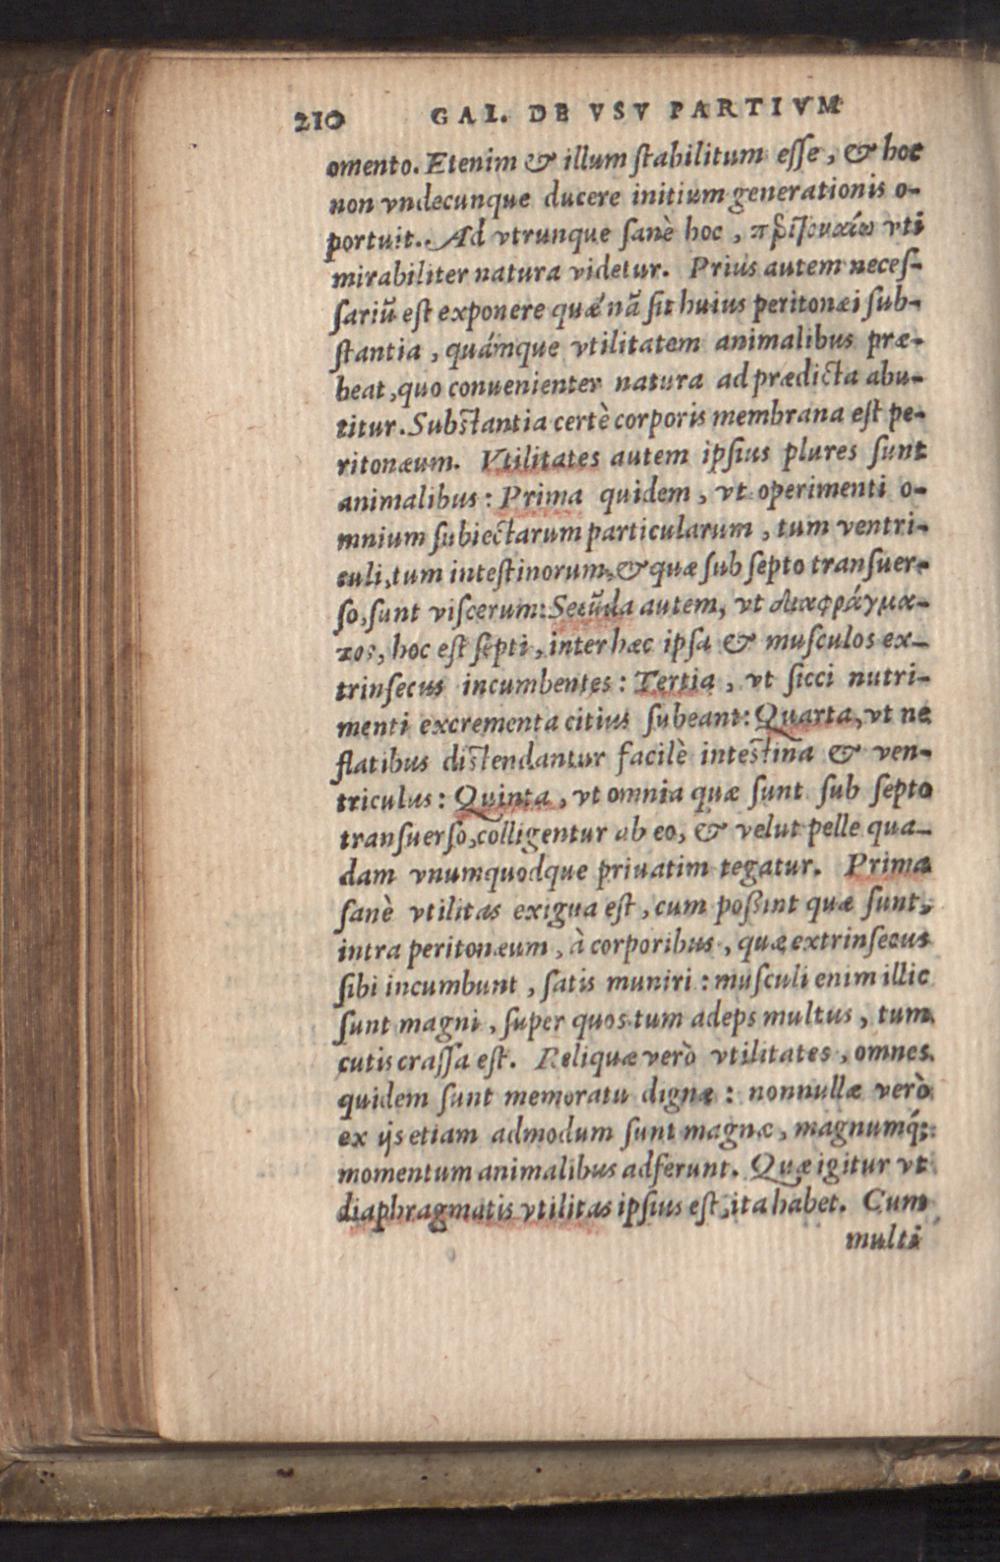 210 GAL. DE VSV PARTIVM
omento. Etenim & illum ſtabilitum eſſe, & hoc
non vndecunque ducere initium generationis o-
portuit. Ad vtrunque ſanè hoc, vti
mirabiliter natura videtur. Prius autem neceſ-
ſariũ eſt exponere quæ nã ſit huius peritonæi ſub-
ſtantia, quámque vtilitatem animalibus præ-
beat, quo conuenienter natura ad prædicta abu-
titur. Subſtantia certè corporis membrana eſt pe-
ritonæum. Vtilitates autem ipſius plures ſunt
animalibus: Prima quidem, vt operimenti o-
mnium ſubiectarum particularum, tum ventri-
culi, tum inteſtinorum, & quæ ſub ſepto tranſuer-
ſo, ſunt viſcerum: Secũda autem, vt διαφράγμα-
τος, hoc eſt ſepti, inter hæc ipſa & muſculos ex-
trinſecus incumbentes: Tertia, vt ſicci nutri-
menti excrementa citius ſubeant: Quarta, vt ne
flatibus diſtendantur facilè inteſtina & ven-
triculus: Quinta, vt omnia quæ ſunt ſub ſepto
tranſuerſo, colligentur ab eo, & velut pelle qua-
dam vnumquodque priuatim tegatur. Prima
ſanè vtilitas exigua eſt, cum poßint quæ ſunt,
intra peritonæum, à corporibus, quæ extrinſecus
ſibi incumbunt, ſatis muniri: muſculi enim illic
ſunt magni, ſuper quos tum adeps multus, tum
cutis craſſa eſt. Reliquæ verò vtilitates, omnes
quidem ſunt memoratu dignæ: nonnullæ verò
ex ijs etiam admodum ſunt magnæ, magnumq́;
momentum animalibus adferunt. Quæ igitur vt
diaphragmatis vtilitas ipſius eſt, ita habet. Cum
multi